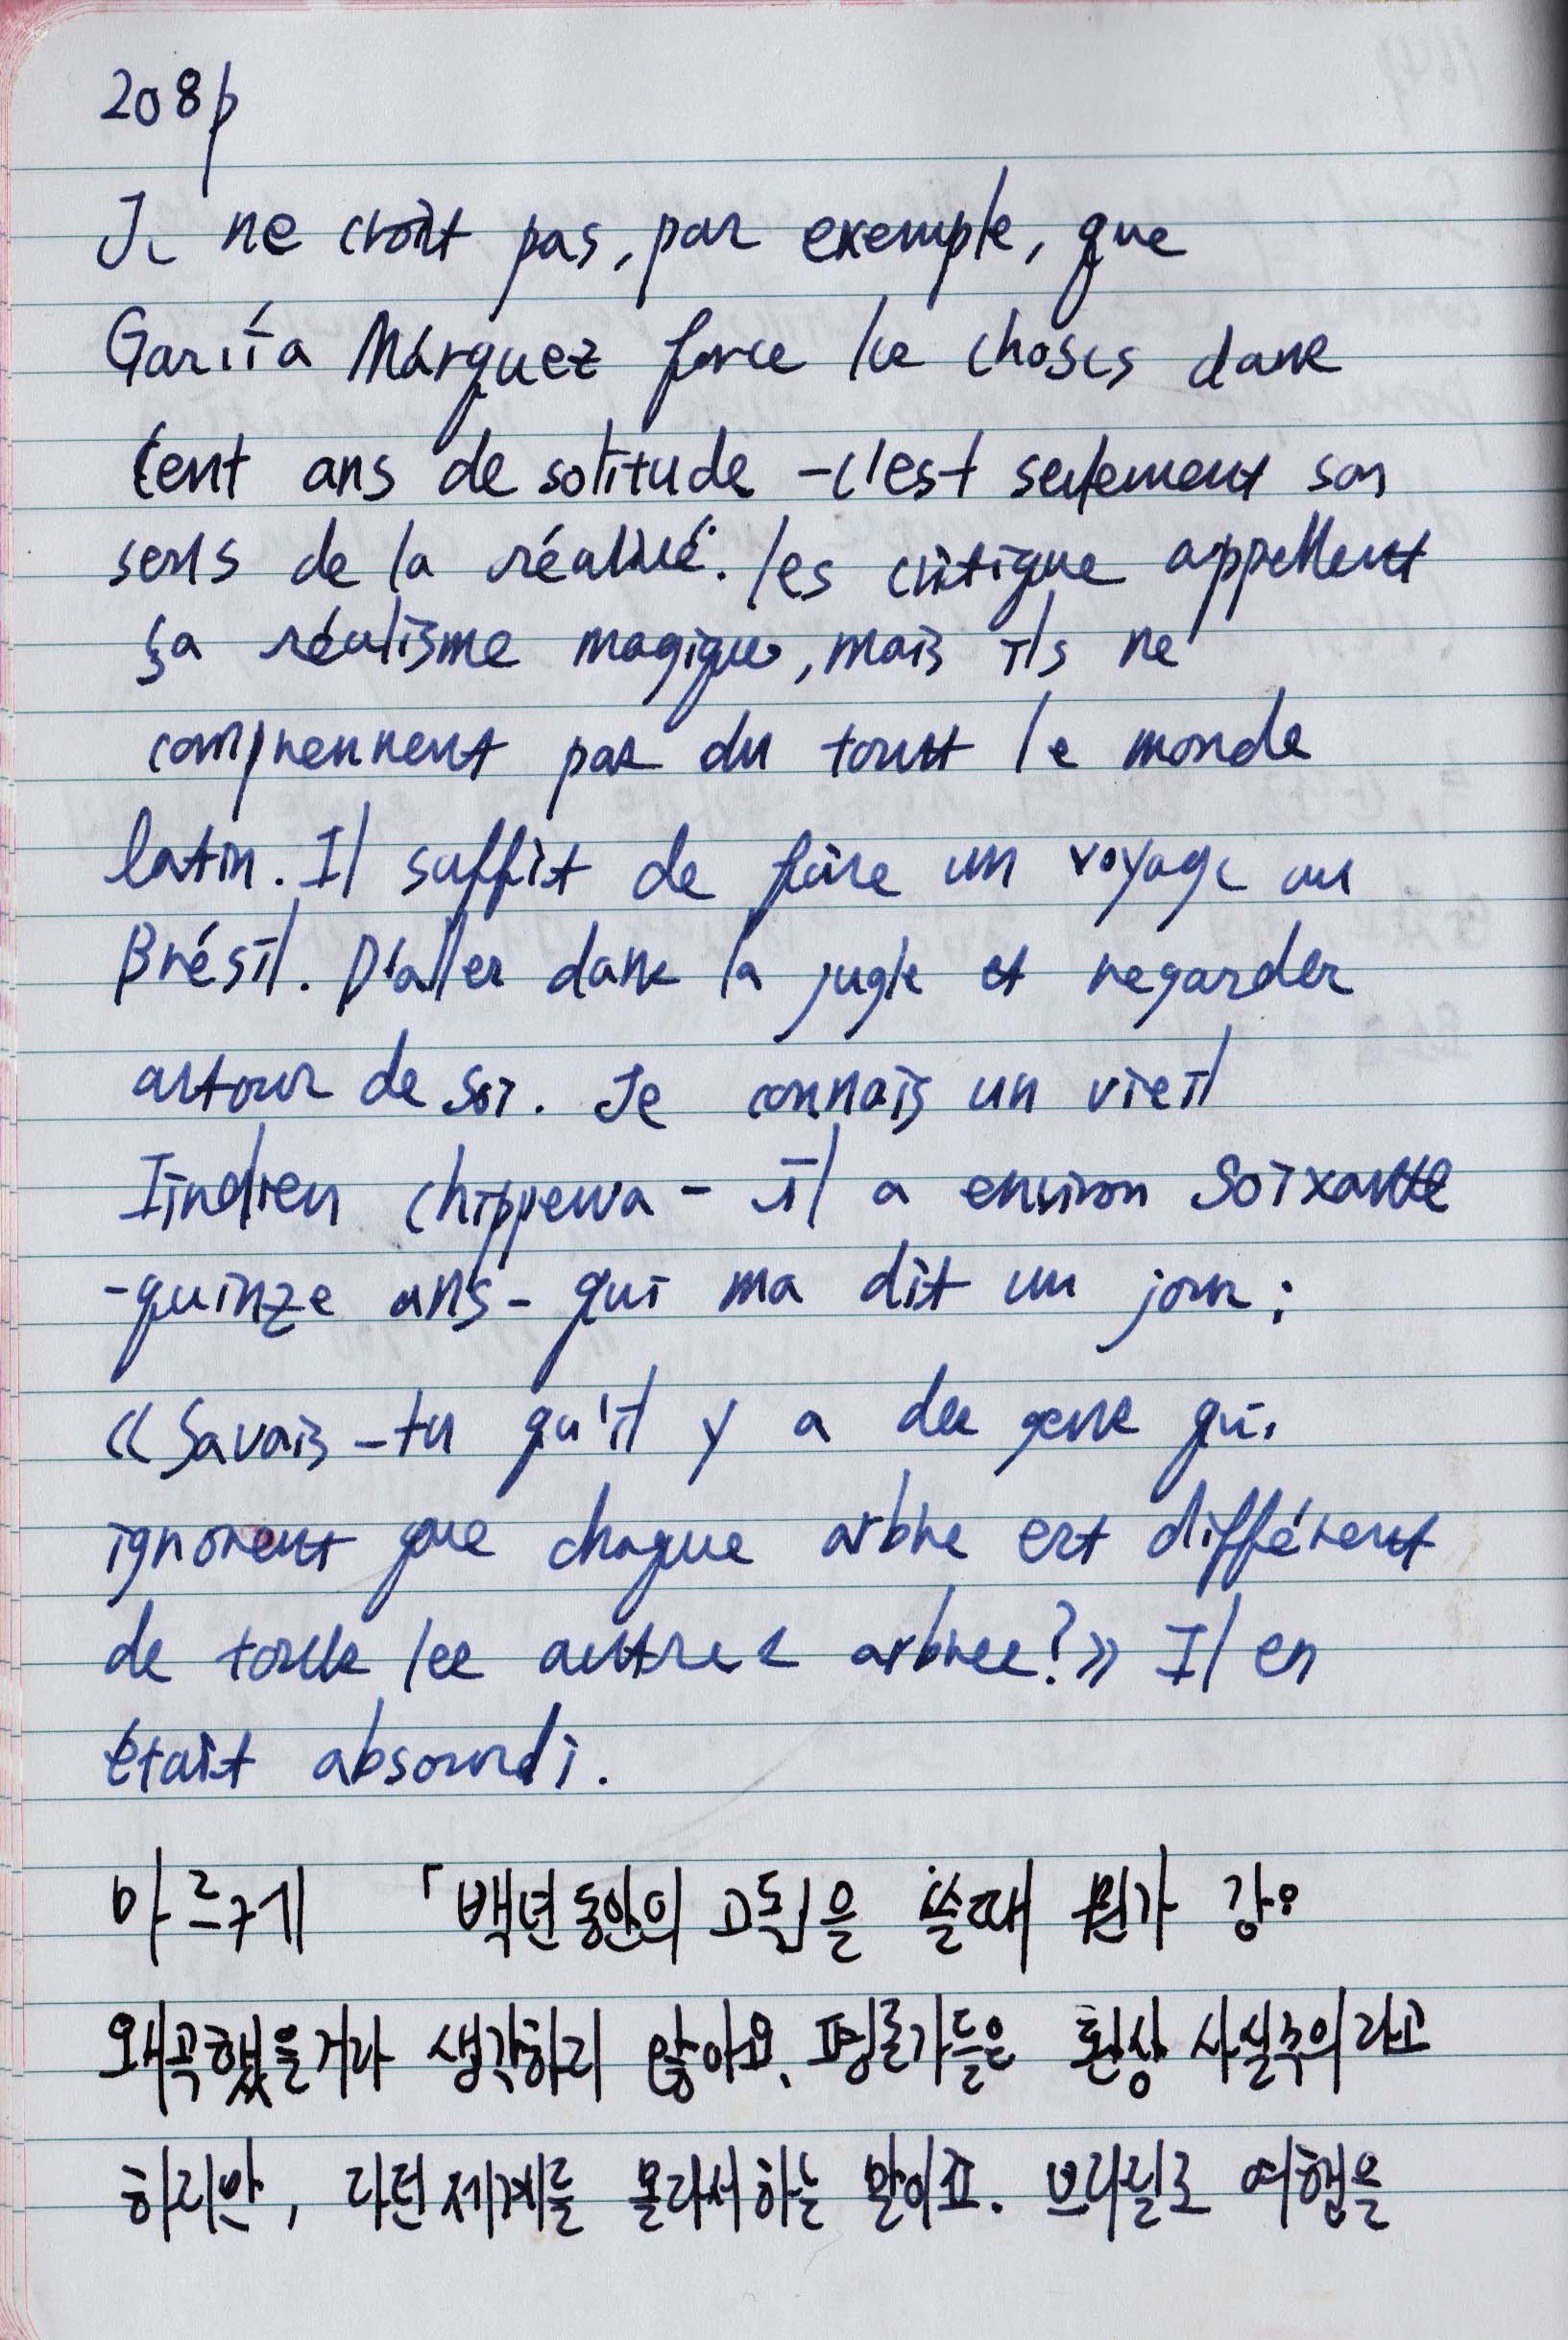 208p
Je ne croit pas, par exemple, que
García Márquez force les choses dans
Cent ans de solitude - c'est seulement son
sens de la réalité. les critique appellent
ça réalisme magique, mais ils ne
comprennent pas du tout le monde
latin. Il suffit de faire un voyage au
Brésil. D'aller dans la jugle et regarder
autour de soi. Je connais un vieil
Iindien chippewa - il a environ soixante
-quinze ans - qui ma dit un jour :
«Savais-tu qu'il y a des gens qui
ignorent que chaque arbre est différent
de tous les autres arbres?» Il en
était absourdi.
마르케 「백년동안의 고독」을 쓸때 뭔가
왜곡했을거라 생각하지 않아요. 평론가들은 환상 사실주의라고
하지만, 라틴세계를 몰라서하는 말이죠. 브라질로 여행을